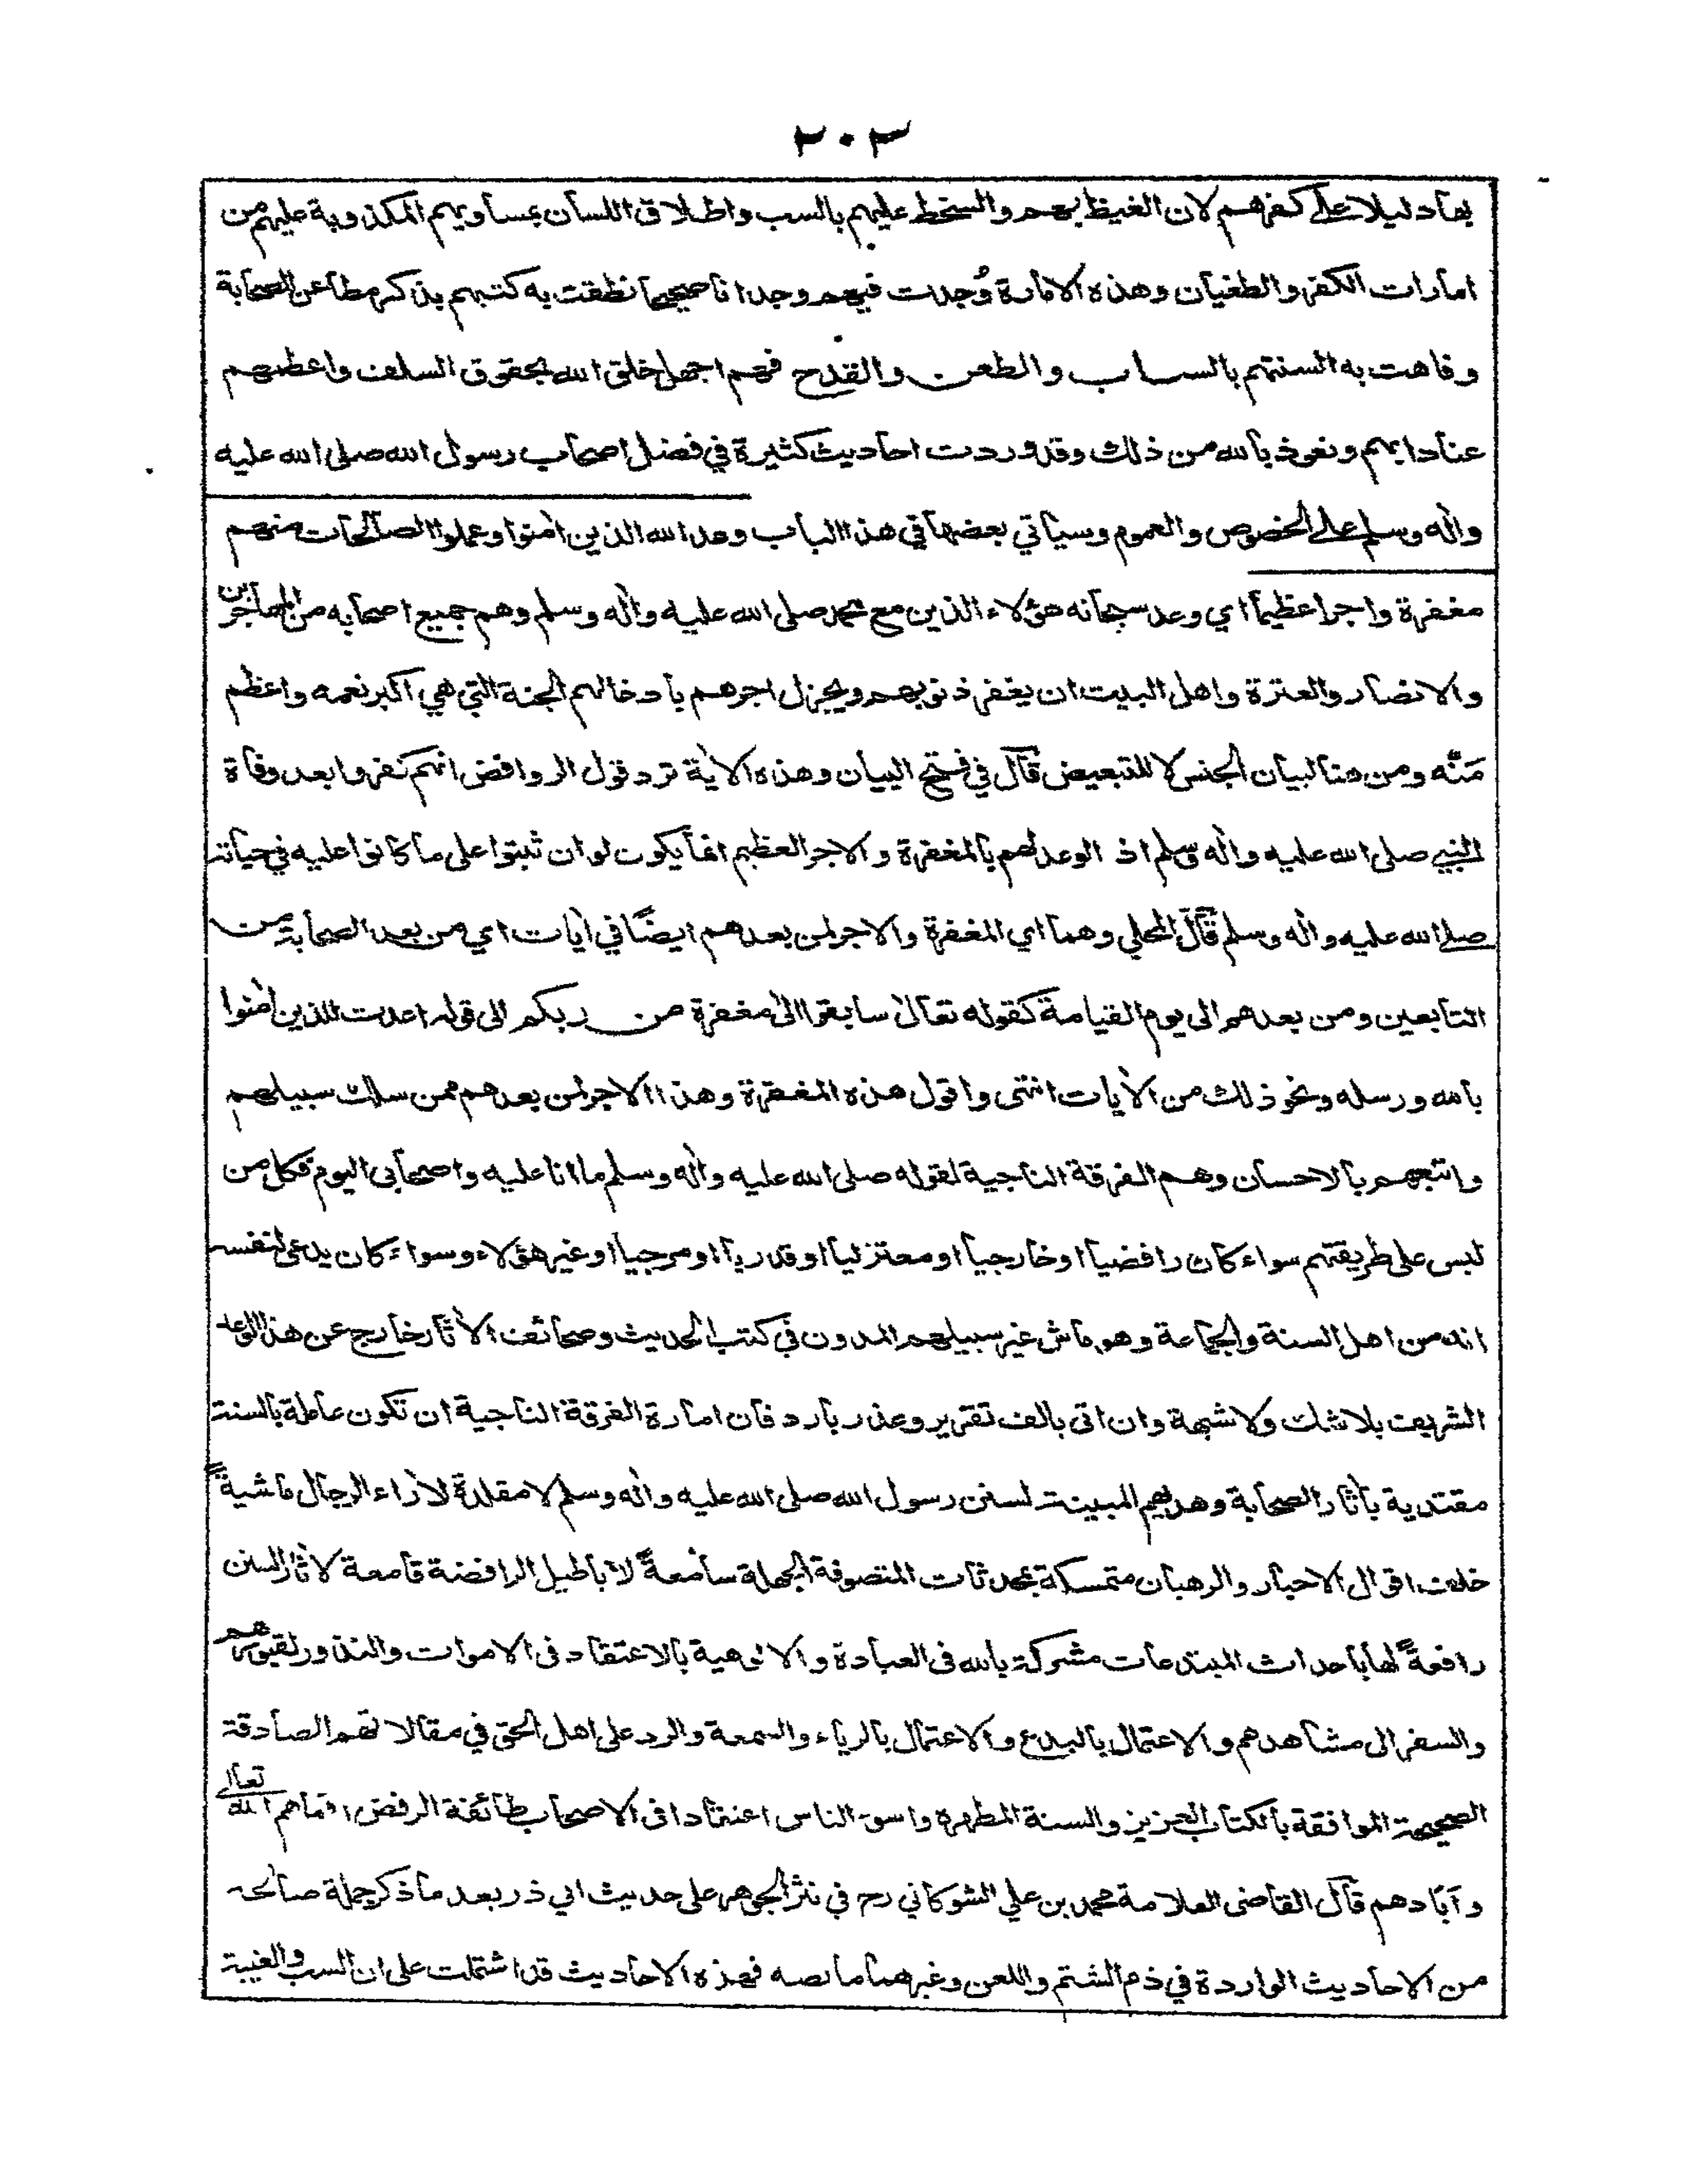 ٢٠٣
بها دليلا على كفرهم لان الغيظ بهم والسخط عليهم بالسب واطلاق اللسان بمساويهم المكذوبة عليهم من
امارات الكفر والطغيان وهذه الامارة وُجدت فيهم وجدانا صحيحا نطقت به كتبهم بذكر مطاعن الصحابة
وفاهت به السنتهم بالسباب والطعن والقدح فهم اجهل خلق الله بحقوق السلف واعظمهم
عنادا بهم ونعوذ بالله من ذلك وقد وردت احاديث كثيرة في فضل اصحاب رسول الله صلى الله عليه
واٰله وسلم على الخصوص والعموم وسياتي بعضها في هذا الباب وعد الله الذين اٰمنوا وعملوا الصالحات منهم
مغفرة واجرا عظيما اي وعد سبحانه هؤلاء الذين مع محمد صلى الله عليه واٰله وسلم وهم جميع اصحابه من المهاجرين
والانصار والعترة واهل البيت ان يغفر ذنوبهم ويجزل اجرهم بادخالهم الجنة التي هي اكبر نعمه واعظم
مَنّه ومن هنا لبيان الجنس لا للتبعيض قال في فتح البيان وهذه الاٰية ترد قول الروافض انهم كفروا بعد وفاة
النبي صلى الله عليه واٰله وسلم اذ الوعد لهم بالمغفرة والاجر العظيم انما يكون لو ان ثبتوا على ما كانوا عليه في حياته
صلى الله عليه واٰله وسلم قال المحلي وهما اي المغفرة والاجر لمن بعدهم ايضًا في اٰيات اي من بعد الصحابة من
التابعين ومن بعدهم الى يوم القيامة كقوله تعالىٰ سابقوا الىٰ مغفرة من ربكم الى قوله اعدت للذين اٰمنوا
بالله ورسله ونحو ذلك من الاٰيات انتهى واقول هذه المغفرة وهذا الاجر لمن بعدهم ممن سلك سبيلهم
واتبعهم بالاحسان وهم الفرقة الناجية لقوله صلى الله عليه واٰله وسلم ما انا عليه واصحابي اليوم فكل من
ليس على طريقتهم سواء كان رافضيا او خارجيا او معتزليا او قدريا او مرجيا او غير هؤلاء وسواء كان يدعى لنفسه
انه من اهل السنة والجماعة وهو ماش غير سبيلهم المدون في كتب الحديث وصحائف الاٰثار خارج عن هذا الوعد
الشريف بلا شك ولا شبهة وان اتى بالف تقرير وعذر بارد فان امارة الفرقة الناجية ان تكون عاملة بالسنة
مقتدية باٰثار الصحابة وهديهم المبينة لسنن رسول الله صلى الله عليه واٰله وسلم لا مقلدة لاٰراء الرجال ماشيةً
خلف اقوال الاحبار والرهبان متمسكة بمحدثات المتصوفة الجهلة سامعةً لاباطيل الرافضة قامعة لاٰثار السنن
رافعةً لها باحداث المبتدعات مشركة بالله في العبادة والالوهية بالاعتقاد في الاموات والنذور لقبورهم
والسفر الى مشاهدهم والاعتمال بالبدع والاعتمال بالرياء والسمعة والرد على اهل الحق في مقالاتهم الصادقة
الصحيحة الموافقة بالكتاب العزيز والسنة المطهرة واسوء الناس اعتقادا في الاصحاب طائفة الرفض اقماهم الله تعالى
وآبادهم قال القاضي العلامة محمد بن علي الشوكاني رح في نثر الجوهر على حديث ابي ذر بعد ما ذكر جملة صالحة
من الاحاديث الواردة في ذم الشتم واللعن وغيرهما ما نصه فهذه الاحاديث قد اشتملت على ان السب والغيبة